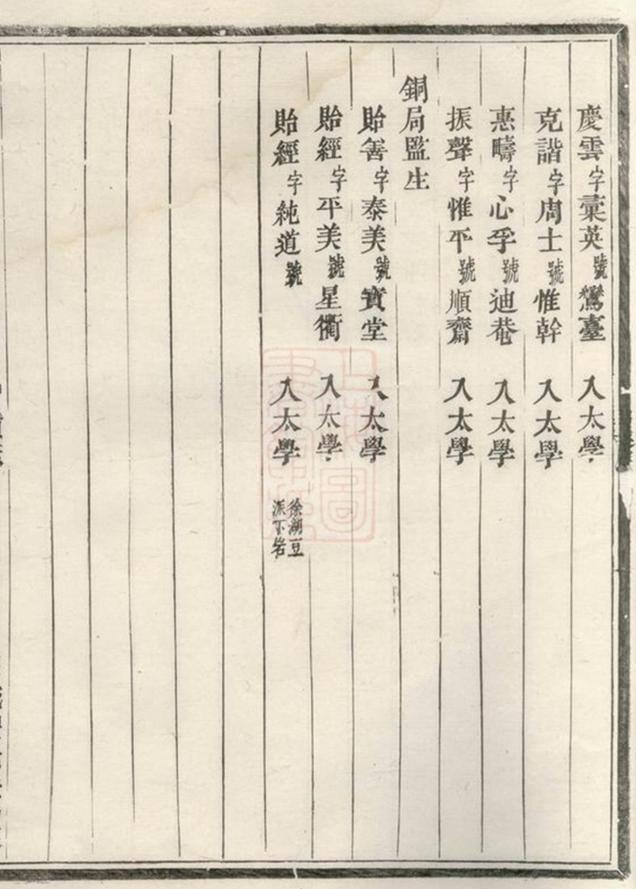 慶雲字彙英號鸞臺 入太學
克諧字周士號惟幹 入太學
惠疇字心孚號迪菴 入太學
振聲字惟平號順齋 入太學
銅局監生
貽善字泰美號寶堂 入太學
貽經字平美號星衢 入太學
貽經字純道號 入太學 徐湖豆派下